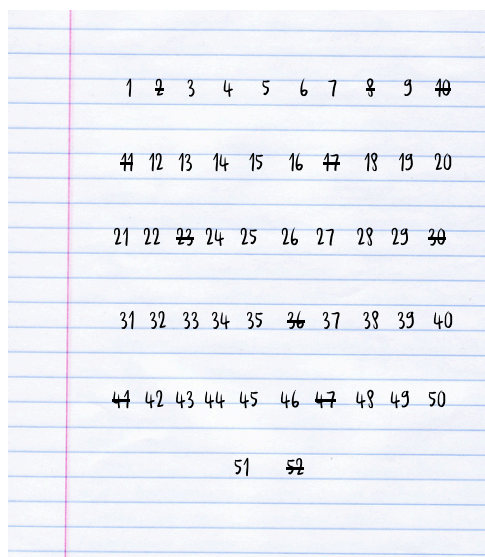 1 2 3 4 5 6 7 8 9 10
11 12 13 14 15 16 17 18 19 20
21 22 23 24 25 26 27 28 29 30
31 32 33 34 35 36 37 38 39 40
41 42 43 44 45 46 47 48 49 50
51 52